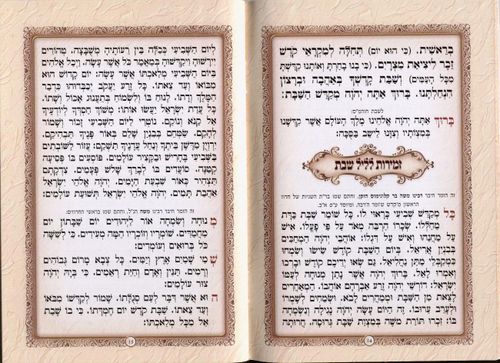 בְּרֵאשִׁית. (כִּי הוּא יוֹם) תְּחִלָּה לְמִקְרָאֵי קֹדֶשׁ
זֵכֶר לִיצִיאַת מִצְרָיִם. (כִּי בָנוּ בָחַרְתָּ וְאוֹתָנוּ קִדַּשְׁתָּ
מִכָּל הָעַמִּים) וְשַׁבַּת קָדְשְׁךָ בְּאַהֲבָה וּבְרָצוֹן
הִנְחַלְתָּנוּ. בָּרוּךְ אַתָּה יְהֹוָה מְקַדֵּשׁ הַשַּׁבָּת:
לשבת חוהמ"ס:
בָּרוּךְ אַתָּה יְהֹוָה אֱלֹהֵינוּ מֶלֶךְ הָעוֹלָם אֲשֶׁר קִדְּשָׁנוּ
בְּמִצְוֹתָיו וְצִוָּנוּ לֵישֵׁב בַּסֻּכָּה:
זמירות לליל שבת
זה הזמר חיבר רבינו משה בר קלונימוס הזקן, וחתם שמו בר"ת השניות של חרוז
הראשון
כָּל מְקַדֵּשׁ שְׁבִיעִי כָּרָאוּי לוֹ. כָּל שׁוֹמֵר שַׁבָּת כַּדָּת
מֵחַלְּלוֹ. שְׂכָרוֹ הַרְבֵּה מְאֹד עַל פִּי פָעֳלוֹ. אִישׁ
עַל מַחֲנֵהוּ וְאִישׁ עַל דִּגְלוֹ: אוֹהֲבֵי יְהֹוָה הַמְחַכִּים
בְּבִנְיַן אֲרִיאֵל. בְּיוֹם הַשַּׁבָּת קֹדֶשׁ שִׂישׂוּ וְשִׂמְחוּ
כִּמְקַבְּלֵי מַתַּן נַחֲלִיאֵל. גַּם שְׂאוּ יְדֵיכֶם קֹדֶשׁ וּבָרְכוּ
וְאִמְרוּ לָאֵל. בָּרוּךְ יְהֹוָה אֲשֶׁר נָתַן מְנוּחָה לְעַמּוֹ
יִשְׂרָאֵל: דּוֹרְשֵׁי יְהֹוָה זֶרַע אַבְרָהָם אוֹהֲבוֹ. הַמְאַחֲרִים
לָצֵאת מִן הַשַּׁבָּת וּמְמַהֲרִים לָבֹא. וּשְׂמֵחִים לְשָׁמְרוֹ
וּלְעָרֵב עֵרוּבוֹ. זֶה הַיּוֹם עָשָׂה יְהֹוָה נָגִילָה וְנִשְׂמְחָה
בוֹ: זִכְרוּ תּוֹרַת מֹשֶׁה בְּמִצְוַת שַׁבָּת גְּרוּסָה. חֲרוּתָה
14
לַיּוֹם הַשְּׁבִיעִי כְּכַלָּה בֵּין רֵעוֹתֶיהָ מְשֻׁבָּצָה. טְהוֹרִים
יִירָשׁוּהָ וִיקַדְּשׁוּהָ בְּמַאֲמַר כָּל אֲשֶׁר עָשָׂה. וַיְכַל אֱלֹהִים
בַּיּוֹם הַשְּׁבִיעִי מְלַאכְתּוֹ אֲשֶׁר עָשָׂה: יוֹם קָדוֹשׁ הוּא
מִבּוֹאוֹ וְעַד צֵאתוֹ. כָּל זֶרַע יַעֲקֹב יְכַבְּדוּהוּ כִּדְבַר
הַמֶּלֶךְ וְדָתוֹ. לָנוּחַ בּוֹ וְלִשְׂמוֹחַ בְּתַעֲנוּג אָכוֹל וְשָׁתֹה.
כָּל עֲדַת יִשְׂרָאֵל יַעֲשׂוּ אוֹתוֹ: מְשׁוֹךְ חַסְדְּךָ לְיוֹדְעֶיךָ
אֵל קַנּוֹא וְנוֹקֵם. נוֹטְרֵי לַיּוֹם הַשְּׁבִיעִי זָכוֹר וְשָׁמוֹר
לְהָקֵם. שַׂמְּחֵם בְּבִנְיַן שָׁלֵם בְּאוֹר פָּנֶיךָ תַּבְהִיקֵם.
יִרְוְיֻן מִדֶּשֶׁן בֵּיתֶךָ וְנַחַל עֲדָנֶיךָ תַשְׁקֵם: עֲזוֹר לַשּׁוֹבְתִים
בַּשְּׁבִיעִי בֶּחָרִישׁ וּבַקָּצִיר עוֹלָמִים. פּוֹסְעִים בּוֹ פְּסִיעָה
קְטַנָּה. סוֹעֲדִים בּוֹ לְבָרֵךְ שָׁלֹשׁ פְּעָמִים. צִדְקָתָם
תַּצְהִיר כְּאוֹר שִׁבְעַת הַיָּמִים. יְהֹוָה אֱלֹהֵי יִשְׂרָאֵל
הָבָה תָמִים. יְהֹוָה אֱלֹהֵי יִשְׂרָאֵל תְּשׁוּעַת עוֹלָמִים:
זה הזמר חיבר רבינו משה הנ"ל, וחתם שמו בראשי החרוזים:
מְנוּחָה וְשִׂמְחָה אוֹר לַיְּהוּדִים. יוֹם שַׁבָּתוֹן יוֹם
מַחֲמַדִּים. שׁוֹמְרָיו וְזוֹכְרָיו הֵמָּה מְעִידִים. כִּי לְשִׁשָּׁה
כֹּל בְּרוּאִים וְעוֹמְדִים:
שְׁמֵי שָׁמַיִם אֶרֶץ וְיַמִּים. כָּל צְבָא מָרוֹם גְּבוֹהִים
וְרָמִים. תַּנִּין וְאָדָם וְחַיַּת רְאֵמִים. כִּי בְּיָהּ יְהֹוָה
צוּר עוֹלָמִים:
הוּא אֲשֶׁר דִּבֶּר לְעַם סְגֻלָּתוֹ. שָׁמוֹר לְקַדְּשׁוֹ מִבֹּאוֹ
וְעַד צֵאתוֹ. שַׁבַּת קֹדֶשׁ יוֹם חֶמְדָּתוֹ. כִּי בוֹ שָׁבַת
אֵל מִכָּל מְלַאכְתּוֹ:
15